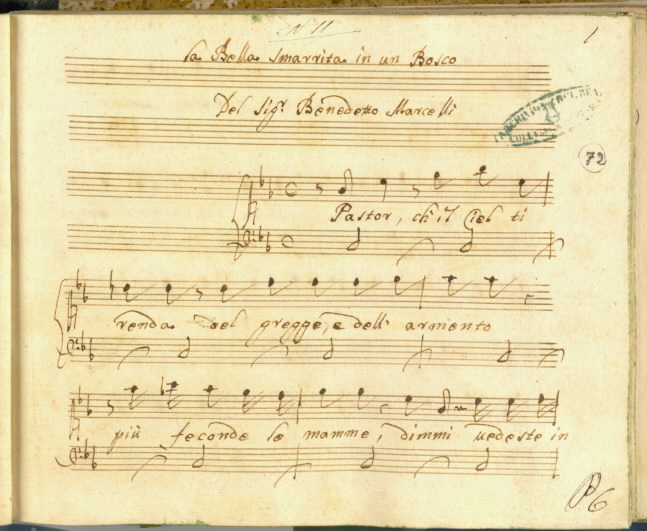 N 11
1
La Bella Smarrita in un Bosco
Del Sigr. Benedetto Marcelli
72
Pastor, ch' il Ciel ti
renda del gregge, e dell' armento
più feconde le mamme, dimmi vedeste in
P6